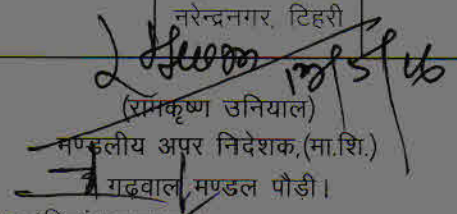 नरेन्द्रनगर, टिहरी
(रामकृष्ण उनियाल)
मण्डलीय अपर निदेशक,(मा.शि.)
गढवाल मण्डल पौड़ी।